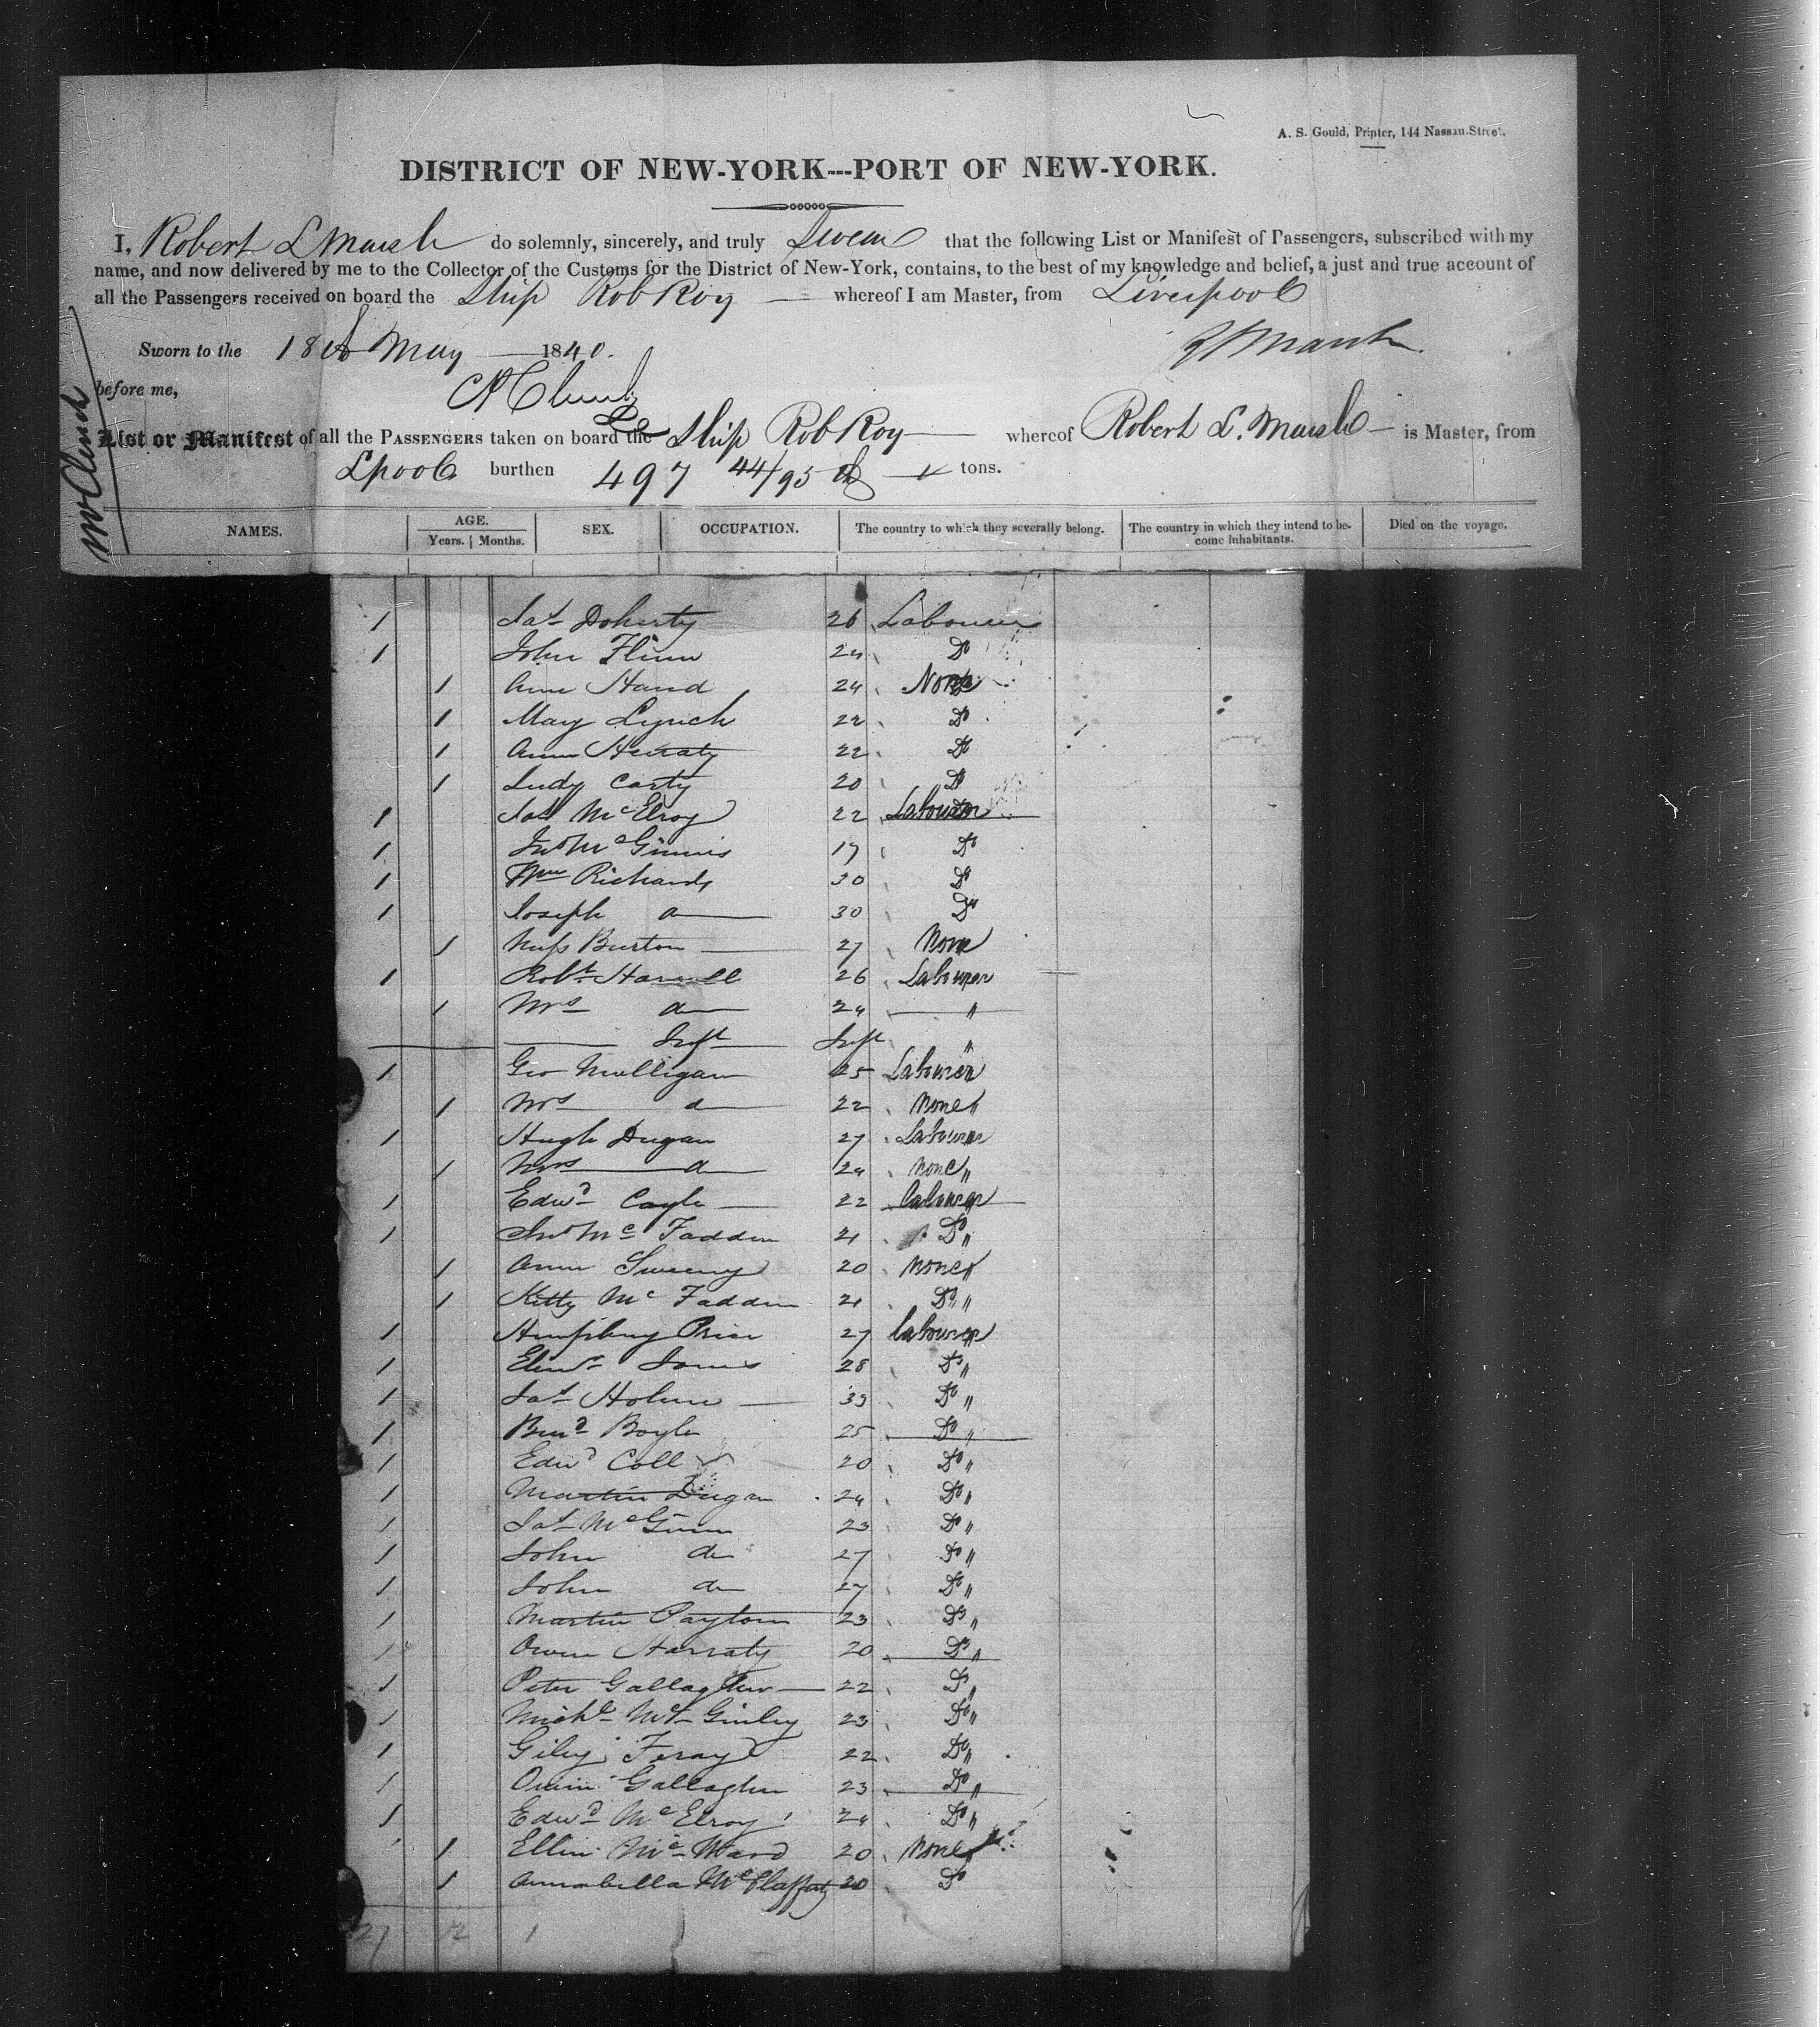 A. S. Gould, Printer, 144 Nassau-Street.
DISTRICT OF NEW-YORK---PORT OF NEW-YORK.
I, Robert L Marsh do solemnly, sincerely, and truly Swear that the following List or Manifest of Passengers, subscribed with my
name, and now delivered by me to the Collector of the Customs for the District of New-York, contains, to the best of my knowledge and belief, a just and true account of
all the Passengers received on board the Ship Rob Roy whereof I am Master, from Liverpool
Marsh
Sworn to the 18th May 1840.
before me,
List or Manifest of all the PASSENGERS taken on board the Ship Rob Roy whereof Robert L. Marsh is Master, from
Lpool burthen 497 44/95 tons.
NAMES. AGE. SEX. OCCUPATION. The country to which they severally belong. The country in which they intend to be- Died on the voyage.
Years. Months. come inhabitants.
1 Jas Doherty 26 Labourer
1 John Flinn 24 Do
1 Ann Hand 24 None
1 Mary Lynch 22 Do
1 Ann Harraty 22 Do
1 Judy Carty 20 Do
1 Jas McElroy 22 Labourer
1 Jno McGinnis 17 Do
1 Wm Richards 30 Do
1 Joseph do 30 Do
1 Miss Burton 27 None
1 Robt Harvell 26 Labourer
1 Mrs do 24 "
Inft Inft "
1 Geo Mulligan 25 Labourer
1 Mrs do 22 None "
1 Hugh Dugan 27 Labourer
1 Mrs do 24 None "
1 Edwd Coyle 22 Labourer
1 Jno Mc Fadden 21 Do "
1 Ann Sweeny 20 None "
1 Kitty Mc Fadden 21 Do "
1 Humphrey Price 27 Labourer
1 Jones 28 Do "
1 Jas Holme 33 Do "
1 Bernd Boyle 25 Do "
1 Edwd Coll 20 Do "
1 Martin Dugan 24 Do "
1 Jas McGinn 23 Do "
1 John do 27 Do "
1 John do 27 Do "
1 Martin Paytom 23 Do "
1 Owen Harraty 20 Do "
1 Peter Gallagher 22 Do "
1 Michl Mc Ginley 23 Do "
1 Giley Feray 22 Do "
1 Owin Gallagher 23 Do "
1 Edwd McElroy 24 Do "
1 Ellin Mc Ward 20 None "
1 Annabella McClaffaty 20 Do
27 12 1